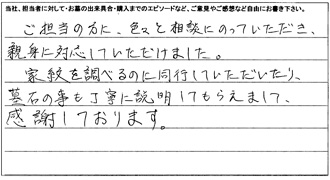 当社、担当者に対して・お墓の出来具合・購入までのエピソードなど、ご意見やご感想など自由にお書き下さい。
ご担当の方に、色々と相談にのっていただき、
親身に対応していただけました。
家紋を調べるのに同行していただいたり、
墓石の事も丁寧に説明してもらえまして、
感謝しております。